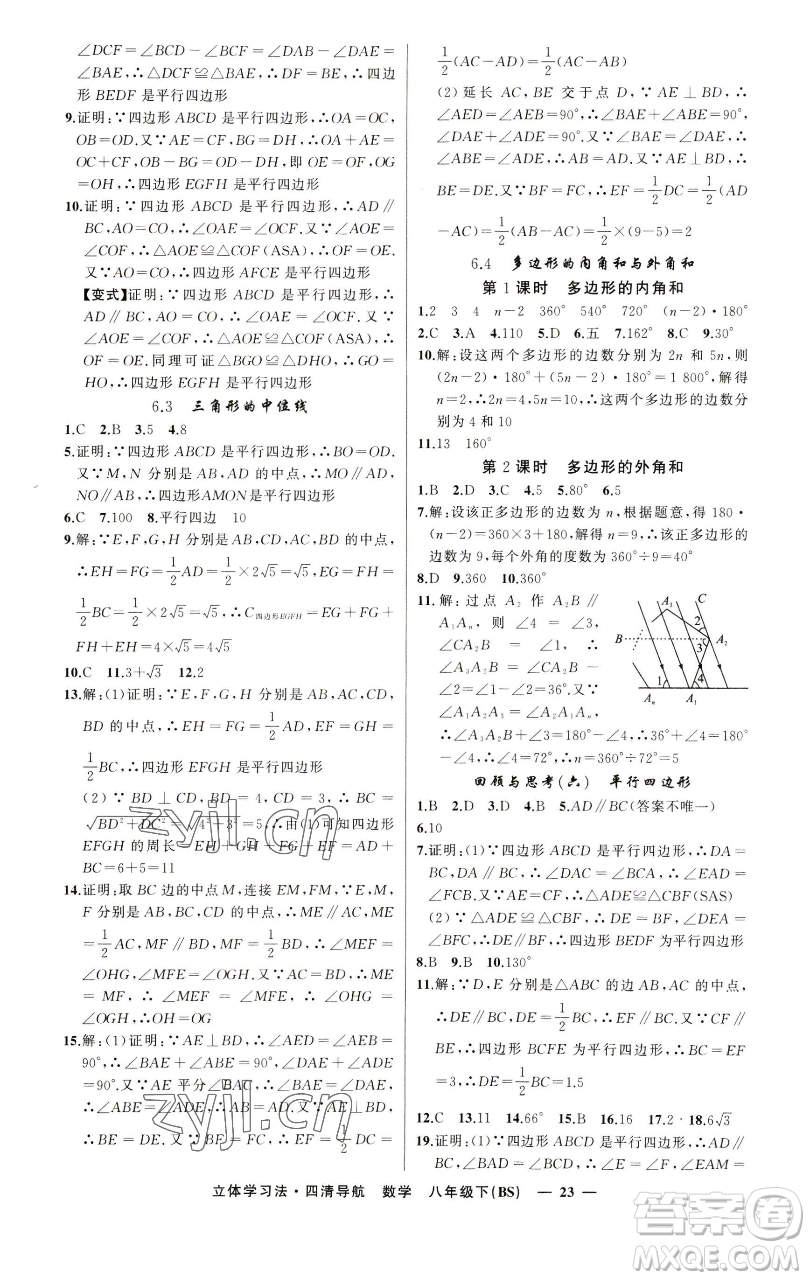 ∠DCF=∠BCD-∠BCF=∠DAB-∠DAE=
∠BAE,∴△DCF≌△BAE,∴DF=BE,∴四边
形BEDF是平行四边形
9.证明:∵四边形ABCD是平行四边形,∴OA=OC,
OB=OD.又∵AE=CF,BG=DH,∴OA+AE=
OC+CF,OB-BG=OD-DH,即OE=OF,OG
=OH,∴四边形EGFH是平行四边形
10.证明:∵四边形ABCD是平行四边形,∴AD∥
BC,AO=CO,∴∠OAE=∠OCF.又∵∠AOE=
∠COF,∴△AOE≌△COF(ASA),∴OE=OF.
又∵AO=CO,∴四边形AFCE是平行四边形
【变式】证明:∵四边形ABCD是平行四边形,∴
AD∥BC,AO=CO,∴∠OAE=∠OCF.又∵
∠AOE=∠COF,∴△AOE≌△COF(ASA),∴
OE=OF.同理可证△BGO≌△DHO,∴GO=
HO,∴四边形EGFH是平行四边形
6.3 三角形的中位线
1.C 2.B 3.5 4.8
5.证明:∵四边形ABCD是平行四边形,∴BO=OD.
又∵M,N分别是AB,AD的中点,∴MO∥AD,
NO∥AB,∴四边形AMON是平行四边形
6.C 7.100 8.平行四边 10
9.解:∵E,F,G,H分别是AB,AC,CD,BD的中点,
∴EH=FG=1/2AD=1/2×2√5=√5,EG=FH=
1/2BC=1/2×2√5=√5,∴C四边形EGFH=EG+FG+
FH+EH=4×√5=4√5
10.C 11.3+√3 12.2
13.解:(1)证明:∵E,F,G,H分别是AB,AC,CD,
BD的中点,∴EH=FG=1/2AD,EF=GH=
1/2BC,∴四边形EFGH是平行四边形
(2)∵BD⊥CD,BD=4,CD=3,∴BC=
√BD²+DC²=√4²+3²=5.∴由(1)可知四边形
EFGH的周长=EH+GH+FG+EF=AD+
BC=6+5=11
14.证明:取BC边的中点M,连接EM,FM,∵E,M,
F分别是AB,BC,CD的中点,∴ME∥AC,ME=
1/2AC,MF∥BD,MF=1/2BD,∴∠MEF=
∠OHG,∠MFE=∠OGH.又∵AC=BD,∴ME
=MF,∴∠MEF=∠MFE,∴∠OHG=
∠OGH,∴OH=OG
15.解:(1)证明:∵AE⊥BD,∴∠AED=∠AEB=
90°,∴∠BAE+∠ABE=90°,∠DAE+∠ADE
=90°.又∵AE平分∠BAC,∴∠BAE=∠DAE,
∴∠ABE=∠ADE,∴AB=AD.又∵AE⊥BD,
∴BE=DE.又∵BF=FC,∴EF=1/2DC=
1/2(AC-AD)=1/2(AC-AB)
(2)延长AC,BE交于点D,∵AE⊥BD,∴
∠AED=∠AEB=90°,∴∠BAE+∠ABE=90°,
∠DAE+∠ADE=90°.又∵∠BAE=∠DAE,∴
∠ABE=∠ADE,∴AB=AD.又∵AE⊥BD,∴
BE=DE.又∵BF=FC,∴EF=1/2DC=1/2(AD
-AC)=1/2(AB-AC)=1/2×(9-5)=2
6.4 多边形的内角和与外角和
第1课时 多边形的内角和
1.2 3 4 n-2 360° 540° 720° (n-2)·180°
2.C 3.A 4.110 5.D 6.五 7.162° 8.C 9.30°
10.解:设这两个多边形的边数分别为2n和5n,则
(2n-2)·180°+(5n-2)·180°=1 800°,解得
n=2,∴2n=4,5n=10,∴这两个多边形的边数分
别为4和10
11.13 160°
第2课时 多边形的外角和
1.B 2.D 3.C 4.5 5.80° 6.5
7.解:设该正多边形的边数为n,根据题意,得180·
(n-2)=360×3+180,解得n=9,∴该正多边形的
边数为9,每个外角的度数为360°÷9=40°
8.D 9.360 10.360°
11.解:过点A₂作A₂B∥
A₁Aₙ,则∠4=∠3,
∠CA₂B=∠1,∴
∠A₃A₂B=∠CA₂B
-∠2=∠1-∠2=36°.又∵
∠A₁A₂A₃=∠A₁A₂B+
∠A₃A₂B=∠3+36°=180°-∠4,∴36°+∠4=180°
-∠4,∴∠4=72°,∴n=360°÷72°=5
A₃ C 2 B 3 A₂ 1 4 Aₙ A₁
回顾与思考(六) 平行四边形
1.B 2.D 3.D 4.B 5.AD∥BC(答案不唯一)
6.10
7.证明:(1)∵四边形ABCD是平行四边形,∴DA=
BC,DA∥BC,∴∠DAC=∠BCA,∴∠EAD=
∠FCB.又∵AE=CF,∴△ADE≌△CBF(SAS)
(2)∵△ADE≌△CBF,∴DE=BF,∠DEA=
∠BFC,∴DE∥BF,∴四边形BEDF为平行四边形
8.B 9.B 10.130°
11.解:∵D,E分别是△ABC的边AB,AC的中点,
∴DE∥BC,DE=1/2BC,∴EF∥BC.又∵CF∥
BE,∴四边形BCFE为平行四边形,∴BC=EF
=3,∴DE=1/2BC=1.5
12.C 13.11 14.66° 15.B 16.16 17.2 18.6√3
19.证明:(1)∵四边形ABCD是平行四边形,∴AD∥
BC,∠BAD=∠BCD,∴∠E=∠F,∠EAM=
立体学习法·四清导航 数学 八年级下(BS) — 23 —
zyjl.cn
zyjl.cn
答案圈
MXQE.COM